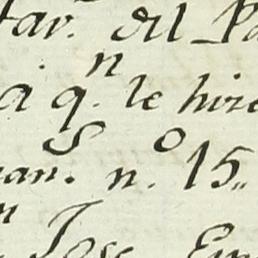 tar. del Pa
a q.n le hize
an.s n.o 15.
n Jose